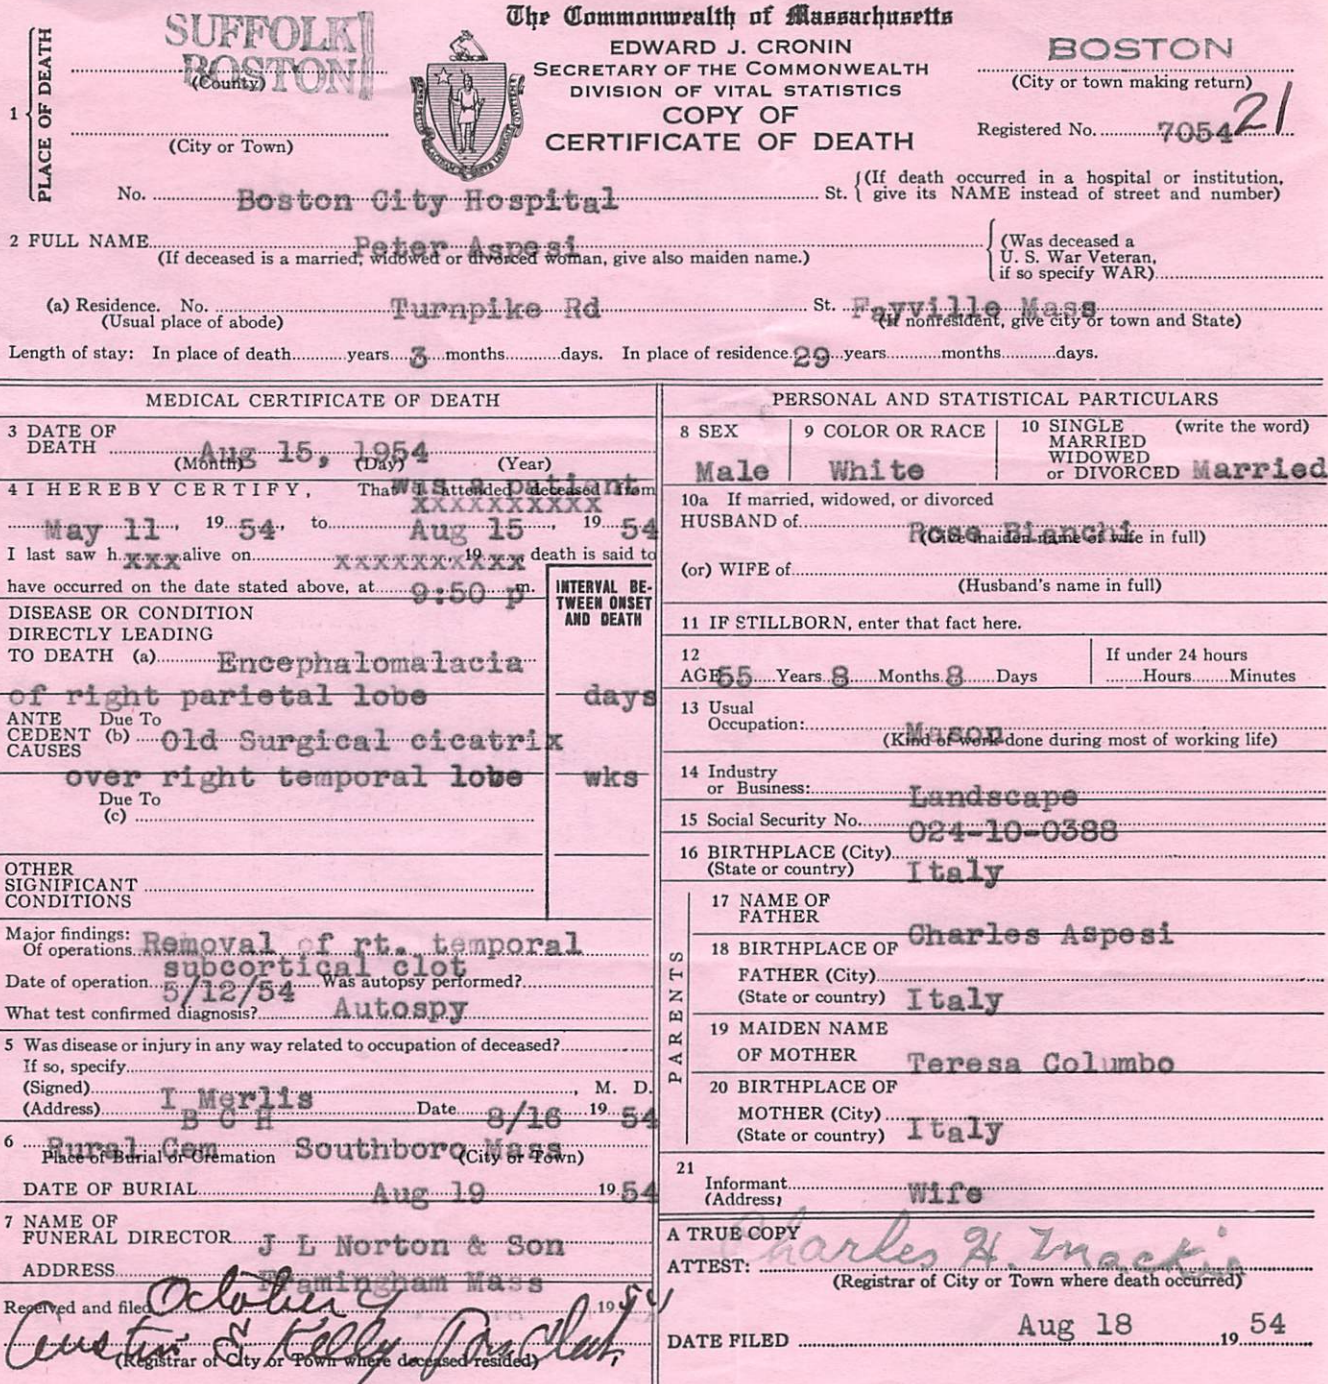 The Commonwealth of Massachusetts
EDWARD J. CRONIN
SECRETARY OF THE COMMONWEALTH
DIVISION OF VITAL STATISTICS
COPY OF
CERTIFICATE OF DEATH
1 PLACE OF DEATH
SUFFOLK
BOSTON
(County)
(City or Town)
BOSTON
(City or town making return)
Registered No. 7054 21
No. Boston City Hospital St. (If death occurred in a hospital or institution, give its NAME instead of street and number)
2 FULL NAME Peter Aspesi
(If deceased is a married, widowed or divorced woman, give also maiden name.)
(Was deceased a U. S. War Veteran, if so specify WAR)
(a) Residence. No. Turnpike Rd St. Fayville Mass
(Usual place of abode) (If nonresident, give city or town and State)
Length of stay: In place of death years 3 months days. In place of residence 29 years months days.
MEDICAL CERTIFICATE OF DEATH
3 DATE OF DEATH Aug 15, 1954
(Month) (Day) (Year)
4 I HEREBY CERTIFY, That I attended deceased from
was a patient
xxxxxxxxxx
May 11, 19 54, to Aug 15, 19 54
I last saw h xxx alive on xxxxxxxx, 19 xx death is said to
have occurred on the date stated above, at 9:50 p m.
INTERVAL BETWEEN ONSET AND DEATH
DISEASE OR CONDITION
DIRECTLY LEADING
TO DEATH (a) Encephalomalacia
of right parietal lobe days
ANTECEDENT CAUSES Due To (b) Old Surgical cicatrix
over right temporal lobe wks
Due To
(c)
OTHER
SIGNIFICANT
CONDITIONS
Major findings:
Of operations Removal of rt. temporal
subcortical clot
Date of operation 5/12/54 Was autopsy performed?
What test confirmed diagnosis? Autospy
5 Was disease or injury in any way related to occupation of deceased?
If so, specify
(Signed) I Merlis, M. D.
(Address) B C H Date 8/16 19 54
6 Rural Cem Southboro Mass
Place of Burial or Cremation (City or Town)
DATE OF BURIAL Aug 19 19 54
7 NAME OF
FUNERAL DIRECTOR J L Norton & Son
ADDRESS Framingham Mass
Received and filed October 4 19 54
Austin E Kelly Town Clerk
(Registrar of City or Town where deceased resided)
PERSONAL AND STATISTICAL PARTICULARS
8 SEX
Male
9 COLOR OR RACE
White
10 SINGLE MARRIED WIDOWED or DIVORCED (write the word)
Married
10a If married, widowed, or divorced
HUSBAND of Rose Bianchi
(Give maiden name of wife in full)
(or) WIFE of
(Husband's name in full)
11 IF STILLBORN, enter that fact here.
12
AGE 55 Years 8 Months 8 Days
If under 24 hours
Hours Minutes
13 Usual
Occupation: Mason
(Kind of work done during most of working life)
14 Industry
or Business: Landscape
15 Social Security No. 024-10-0388
16 BIRTHPLACE (City)
(State or country) Italy
PARENTS
17 NAME OF
FATHER Charles Aspesi
18 BIRTHPLACE OF
FATHER (City)
(State or country) Italy
19 MAIDEN NAME
OF MOTHER Teresa Columbo
20 BIRTHPLACE OF
MOTHER (City)
(State or country) Italy
21
Informant Wife
(Address)
A TRUE COPY
ATTEST: Charles H. Mackie
(Registrar of City or Town where death occurred)
DATE FILED Aug 18 19 54